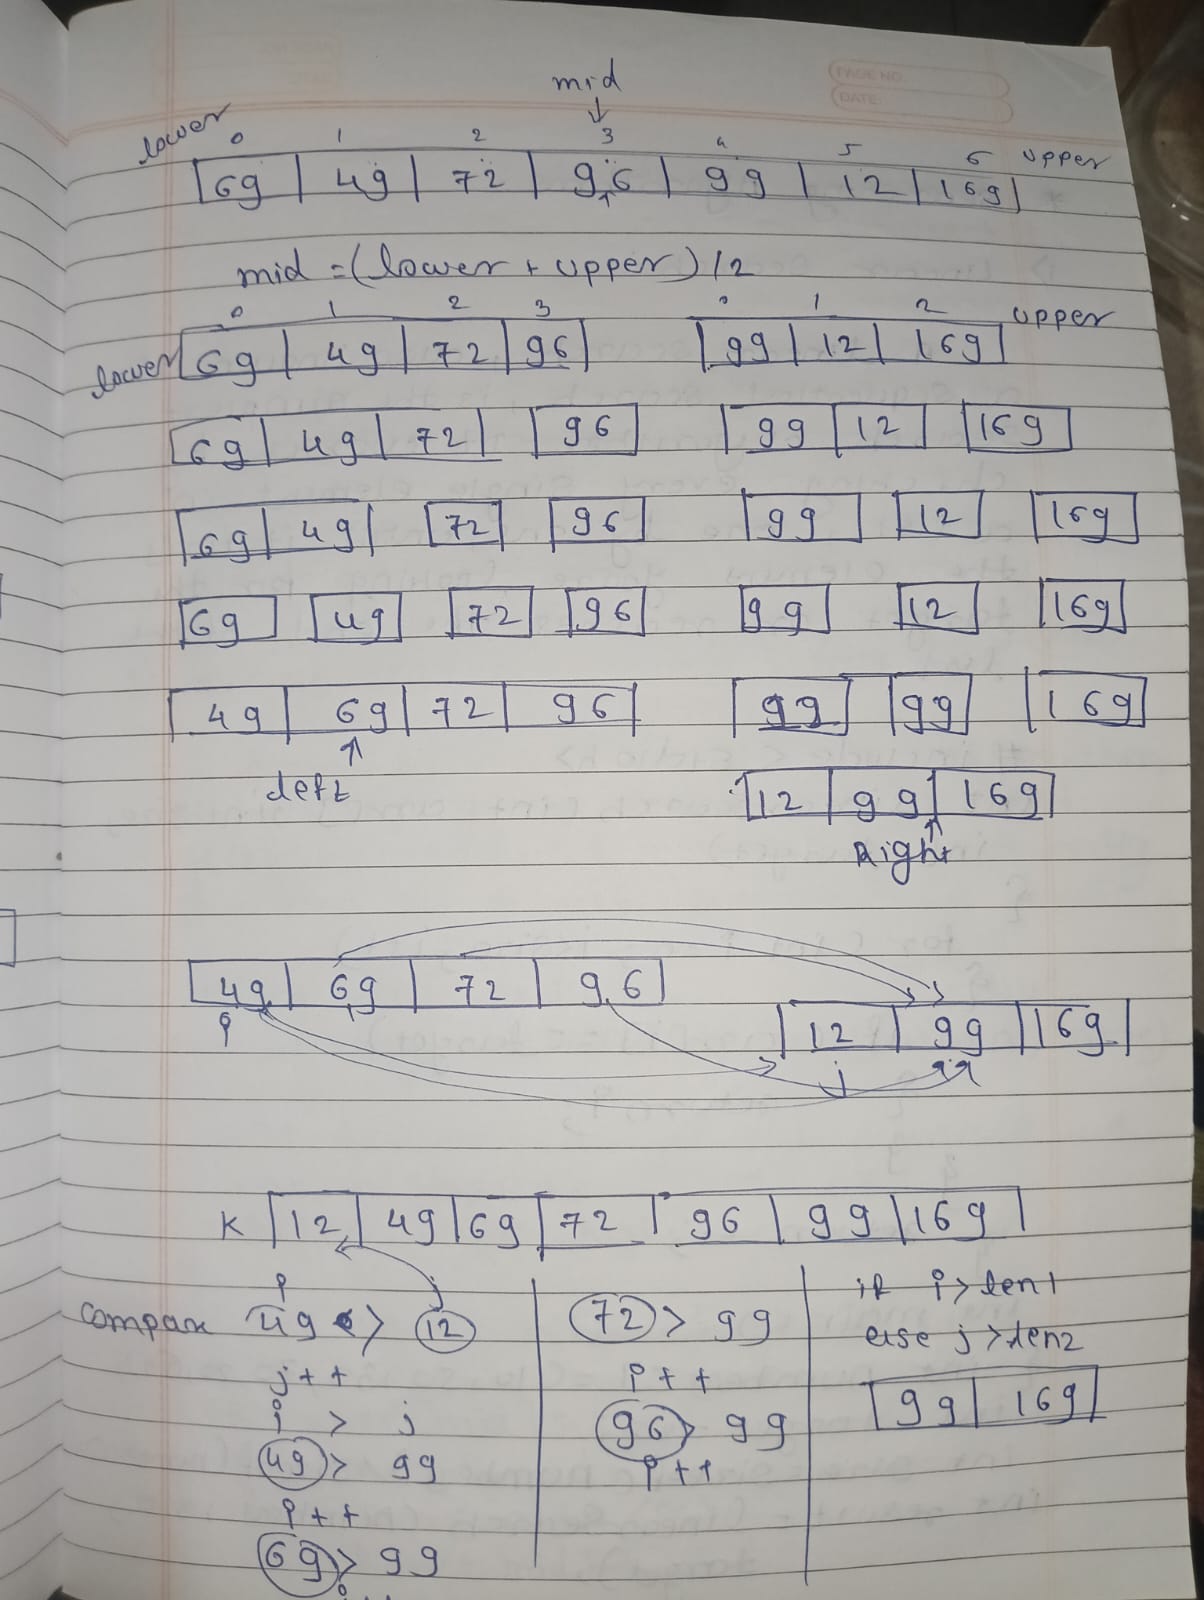 PAGE NO.
DATE:
mid
lower 0 1 2 3 4 5 6 upper
69 49 72 96 99 12 169
mid = (lower + upper) / 2
0 1 2 3 0 1 2 upper
lower 69 49 72 96 99 12 169
69 49 72 96 99 12 169
69 49 72 96 99 12 169
69 49 72 96 99 12 169
49 69 72 96 99 99 169
left
12 99 169
Right
49 69 72 96
i
12 99 169
j
K 12 49 69 72 96 99 169
i j
compare 49 > 12
j++
i > j
49 > 99
i++
69 > 99
72 > 99
i++
96 > 99
i++
if i > len1
else j > len2
99 169